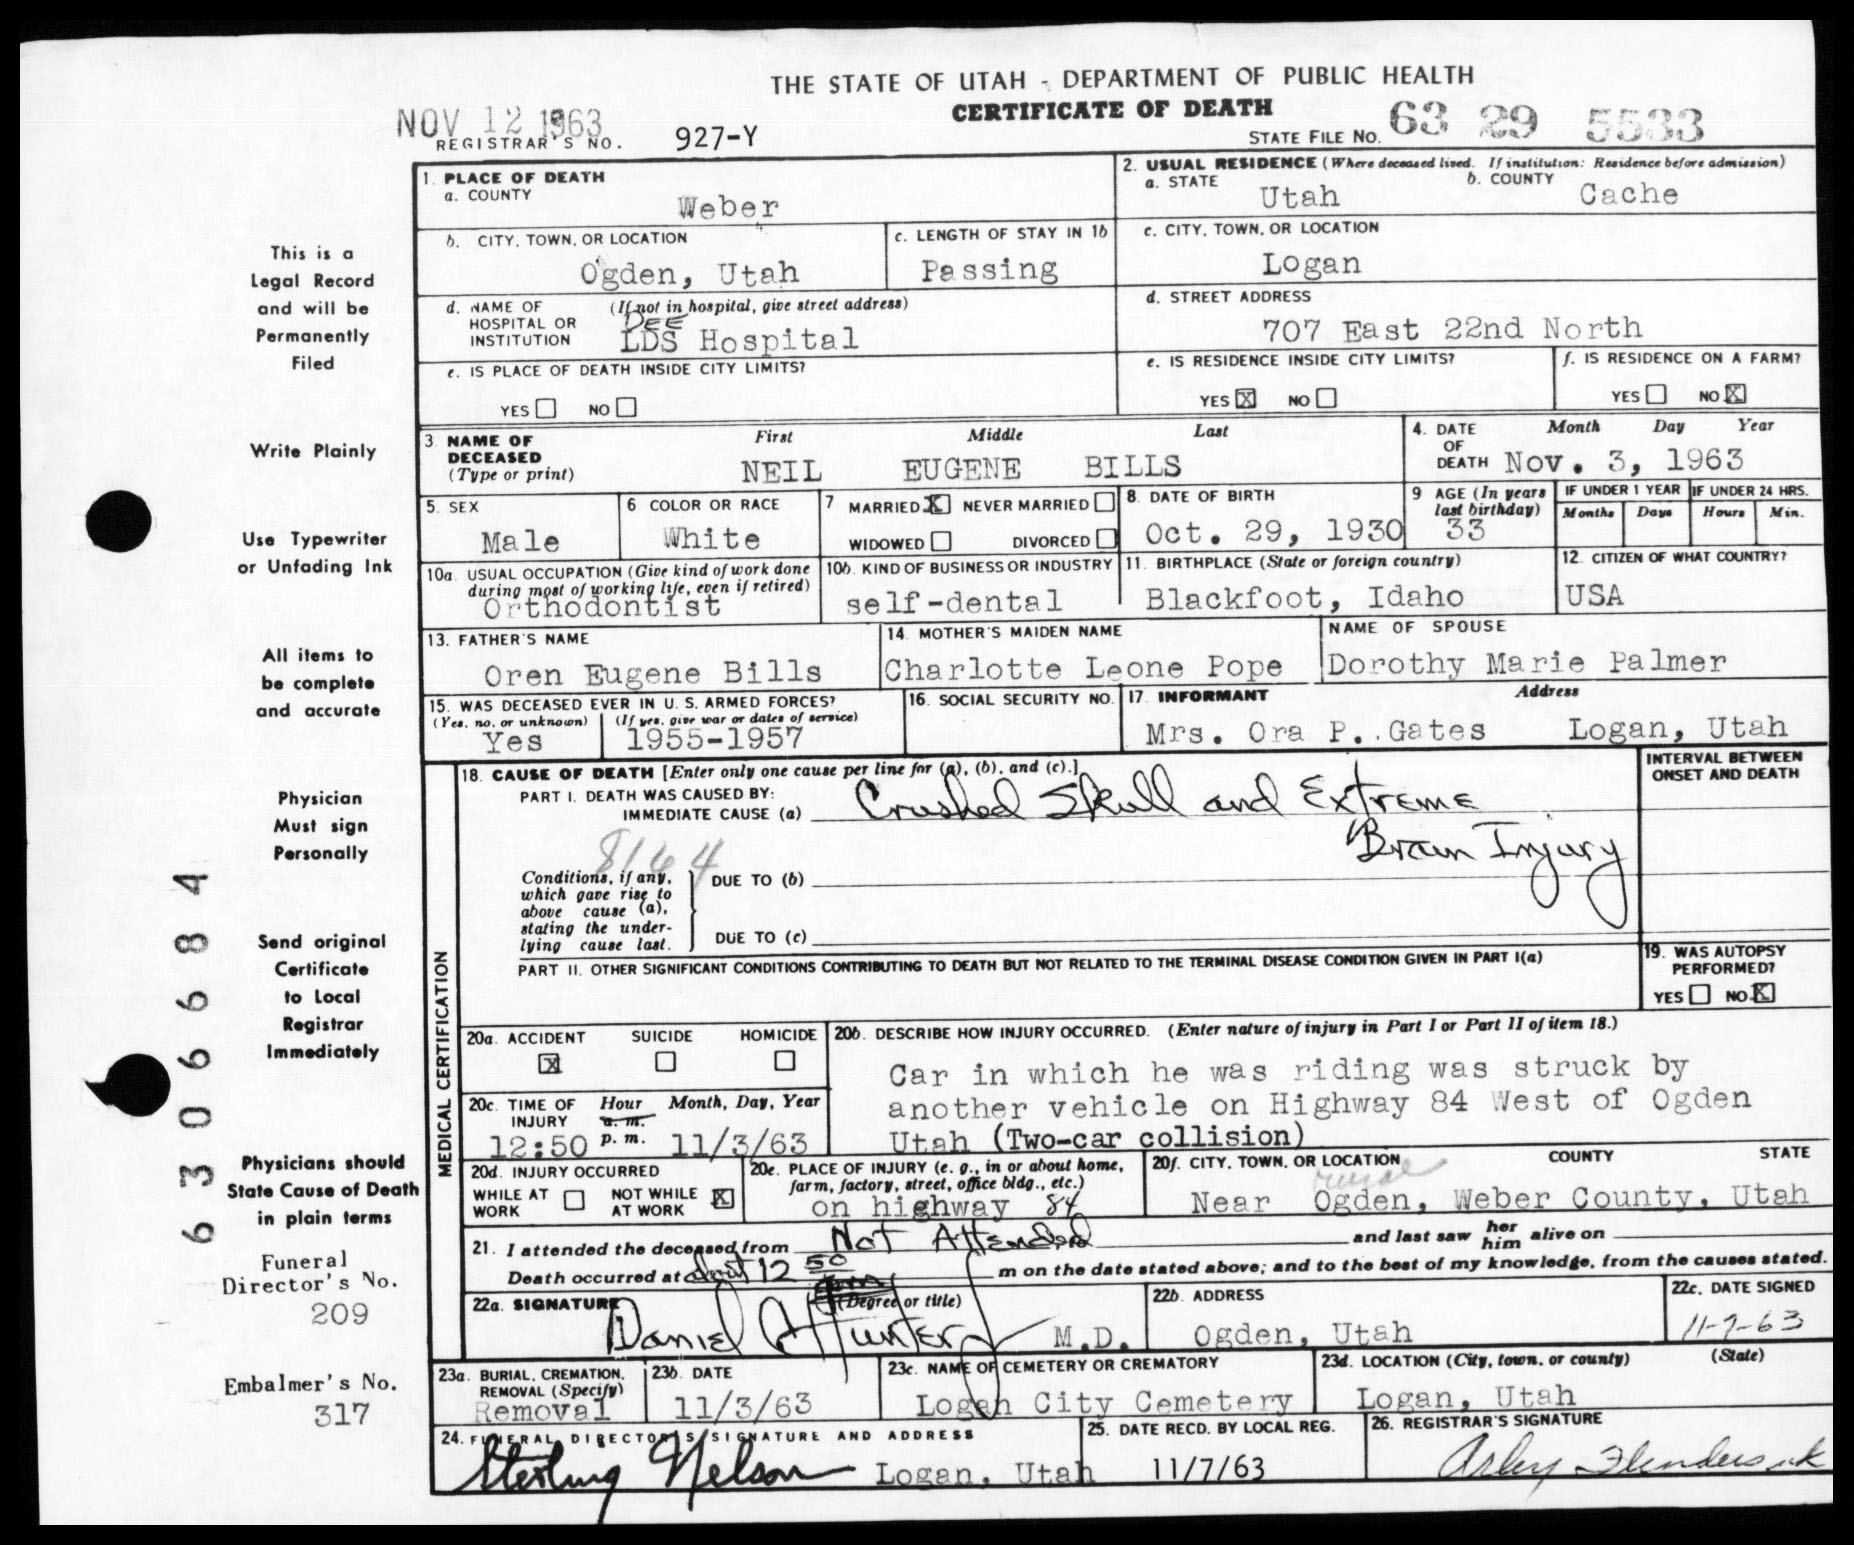 THE STATE OF UTAH - DEPARTMENT OF PUBLIC HEALTH
CERTIFICATE OF DEATH
NOV 12 1963
REGISTRAR'S NO. 927-Y
STATE FILE NO. 63 29 5533
1. PLACE OF DEATH
a. COUNTY
Weber
2. USUAL RESIDENCE (Where deceased lived. If institution: Residence before admission)
a. STATE Utah b. COUNTY Cache
b. CITY, TOWN, OR LOCATION
Ogden, Utah
c. LENGTH OF STAY IN 1b
Passing
c. CITY, TOWN, OR LOCATION
Logan
d. NAME OF HOSPITAL OR INSTITUTION (If not in hospital, give street address)
DEE
LDS Hospital
d. STREET ADDRESS
707 East 22nd North
e. IS PLACE OF DEATH INSIDE CITY LIMITS?
YES NO
e. IS RESIDENCE INSIDE CITY LIMITS?
YES X NO
f. IS RESIDENCE ON A FARM?
YES NO X
3. NAME OF DECEASED (Type or print)
First Middle Last
NEIL EUGENE BILLS
4. DATE OF DEATH Month Day Year
Nov. 3, 1963
5. SEX
Male
6 COLOR OR RACE
White
7 MARRIED X NEVER MARRIED
WIDOWED DIVORCED
8. DATE OF BIRTH
Oct. 29, 1930
9 AGE (In years last birthday)
33
IF UNDER 1 YEAR
Months Days
IF UNDER 24 HRS.
Hours Min.
10a. USUAL OCCUPATION (Give kind of work done during most of working life, even if retired)
Orthodontist
10b. KIND OF BUSINESS OR INDUSTRY
self-dental
11. BIRTHPLACE (State or foreign country)
Blackfoot, Idaho
12. CITIZEN OF WHAT COUNTRY?
USA
13. FATHER'S NAME
Oren Eugene Bills
14. MOTHER'S MAIDEN NAME
Charlotte Leone Pope
NAME OF SPOUSE
Dorothy Marie Palmer
15. WAS DECEASED EVER IN U. S. ARMED FORCES?
(Yes, no, or unknown) (If yes, give war or dates of service)
Yes 1955-1957
16. SOCIAL SECURITY NO.
17. INFORMANT Address
Mrs. Ora P. Gates Logan, Utah
MEDICAL CERTIFICATION
18. CAUSE OF DEATH [Enter only one cause per line for (a), (b), and (c).]
INTERVAL BETWEEN ONSET AND DEATH
PART I. DEATH WAS CAUSED BY:
IMMEDIATE CAUSE (a) Crushed Skull and Extreme
Brain Injury
8164
Conditions, if any, which gave rise to above cause (a), stating the underlying cause last.
DUE TO (b)
DUE TO (c)
PART II. OTHER SIGNIFICANT CONDITIONS CONTRIBUTING TO DEATH BUT NOT RELATED TO THE TERMINAL DISEASE CONDITION GIVEN IN PART I(a)
19. WAS AUTOPSY PERFORMED?
YES NO X
20a. ACCIDENT SUICIDE HOMICIDE
X
20b. DESCRIBE HOW INJURY OCCURRED. (Enter nature of injury in Part I or Part II of item 18.)
Car in which he was riding was struck by
another vehicle on Highway 84 West of Ogden
Utah (Two-car collision)
20c. TIME OF INJURY Hour Month, Day, Year
a. m.
12:50 p. m. 11/3/63
20d. INJURY OCCURRED
WHILE AT WORK NOT WHILE AT WORK X
20e. PLACE OF INJURY (e. g., in or about home, farm, factory, street, office bldg., etc.)
on highway 84
20f. CITY, TOWN, OR LOCATION COUNTY STATE
rural
Near Ogden, Weber County, Utah
21. I attended the deceased from Not Attended and last saw her him alive on
Death occurred at about 12 50 m on the date stated above; and to the best of my knowledge, from the causes stated.
22a. SIGNATURE (Degree or title)
Daniel Hunter M.D.
22b. ADDRESS
Ogden, Utah
22c. DATE SIGNED
11-7-63
23a. BURIAL, CREMATION, REMOVAL (Specify)
Removal
23b. DATE
11/3/63
23c. NAME OF CEMETERY OR CREMATORY
Logan City Cemetery
23d. LOCATION (City, town, or county) (State)
Logan, Utah
24. FUNERAL DIRECTOR'S SIGNATURE AND ADDRESS
Sterling Nelson Logan, Utah
25. DATE RECD. BY LOCAL REG.
11/7/63
26. REGISTRAR'S SIGNATURE
This is a
Legal Record
and will be
Permanently
Filed
Write Plainly
Use Typewriter
or Unfading Ink
All items to
be complete
and accurate
Physician
Must sign
Personally
Send original
Certificate
to Local
Registrar
Immediately
Physicians should
State Cause of Death
in plain terms
Funeral
Director's No.
209
Embalmer's No.
317
6306684